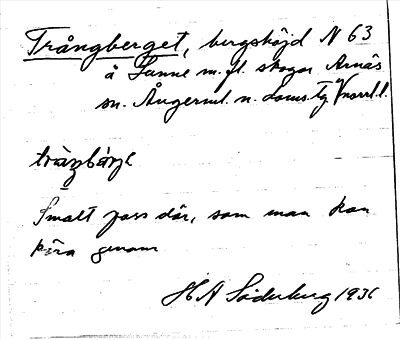 Trångberget, bergshöjd N 63
å Sunne m.fl. skogar Arnäs
sn. Ångerml. n. Doms.tg
Smalt pass där, som man kan
köra genom
H A Söderberg 1936